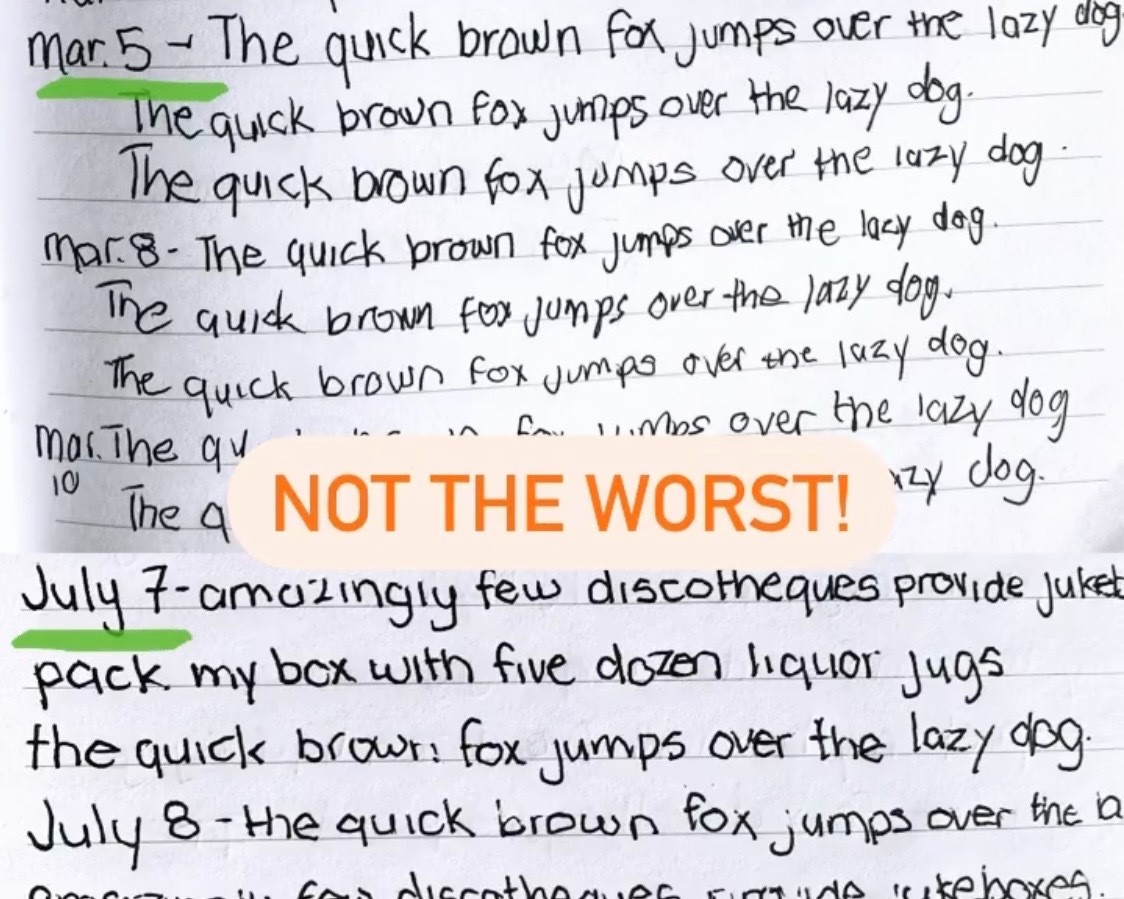 Mar. 5 - The quick brown fox jumps over the lazy dog.
The quick brown fox jumps over the lazy dog.
The quick brown fox jumps over the lazy dog.
Mar. 8 - The quick brown fox jumps over the lacy dog.
The quick brown fox jumps over the lazy dog.
The quick brown fox jumps over the lazy dog.
Mar. The over the lazy dog
10 The dog.
NOT THE WORST!
July 7 - amazingly few discotheques provide
pack my box with five dozen liquor jugs
the quick brown fox jumps over the lazy dog.
July 8 - the quick brown fox jumps over the
few discotheques jukeboxes.